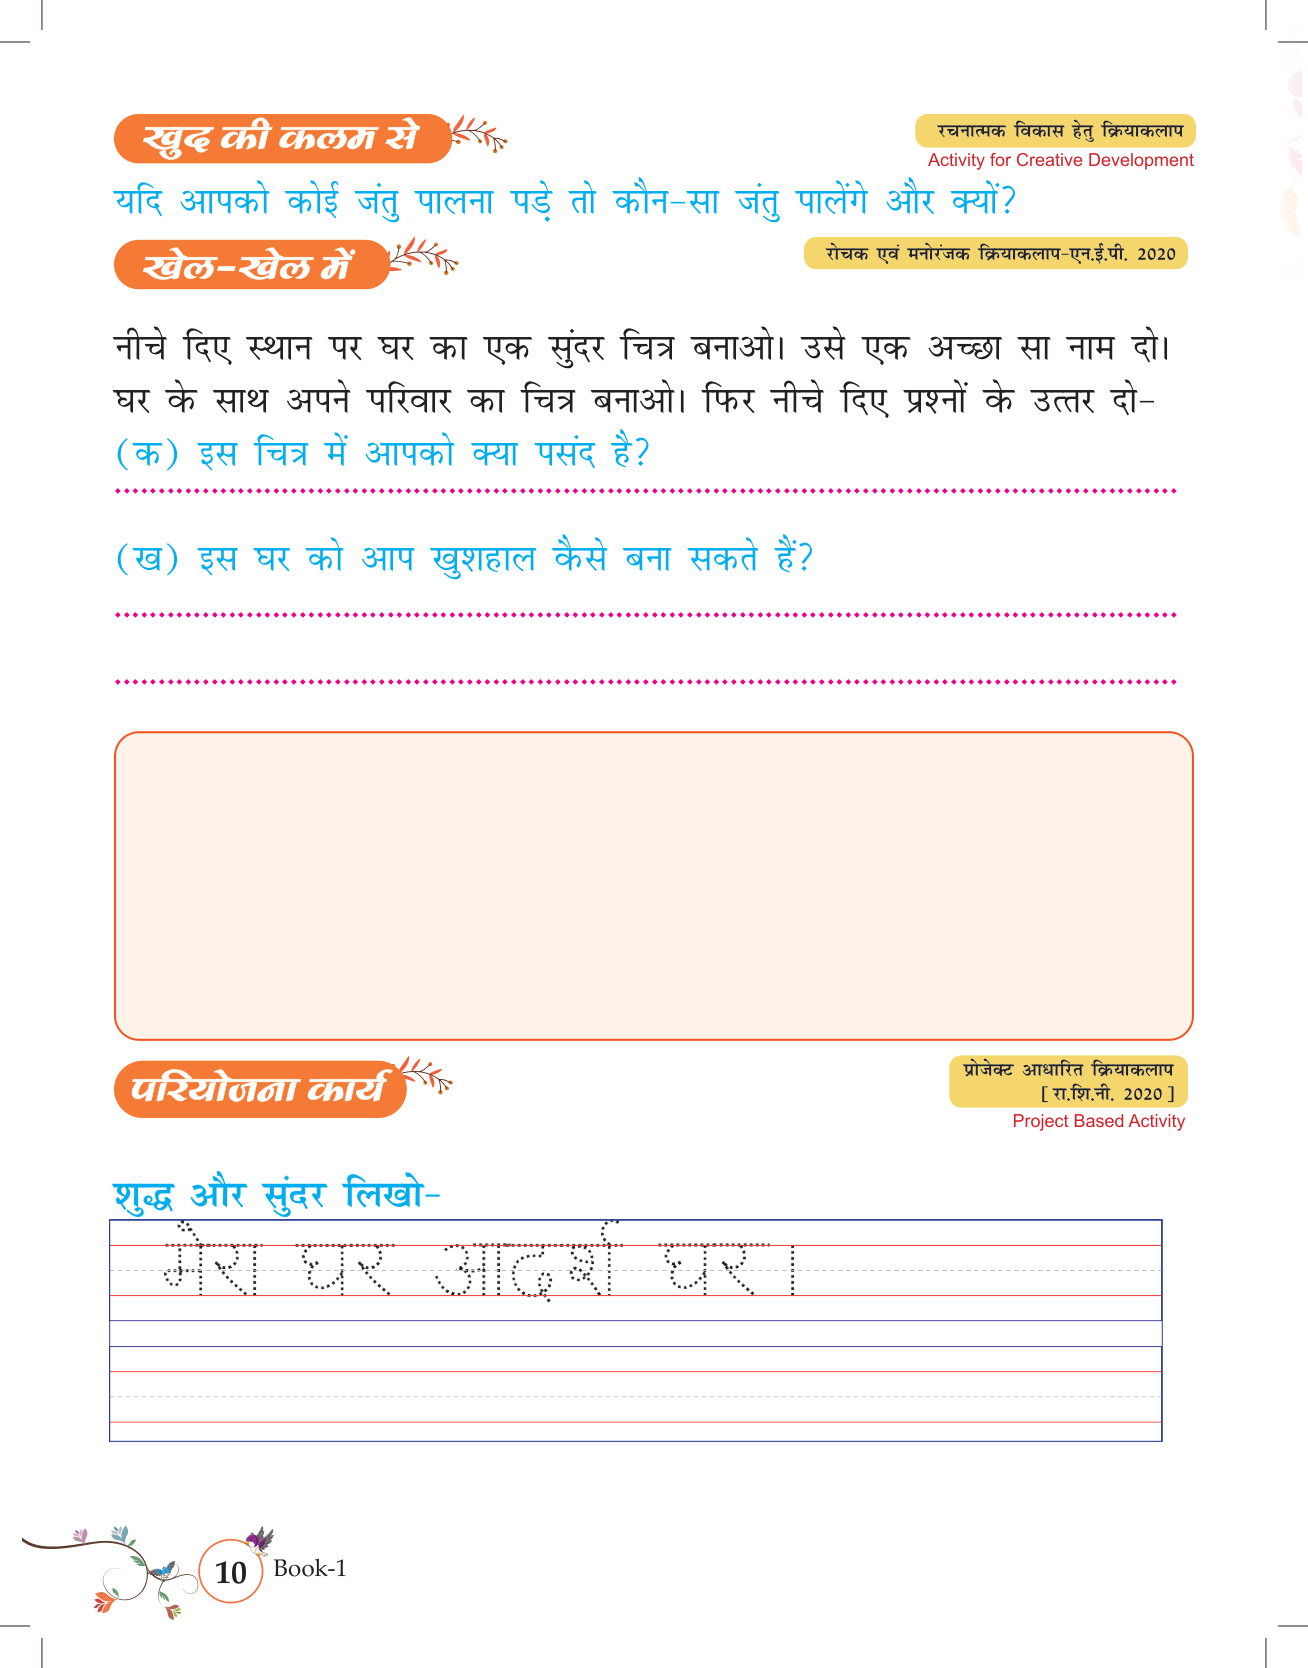 खुद की कलम से
रचनात्मक विकास हेतु क्रियाकलाप
Activity for Creative Development
यदि आपको कोई जंतु पालना पड़े तो कौन-सा जंतु पालेंगे और क्यों?
खेल-खेल में
रोचक एवं मनोरंजक क्रियाकलाप-एन.ई.पी. 2020
नीचे दिए स्थान पर घर का एक सुंदर चित्र बनाओ। उसे एक अच्छा सा नाम दो।
घर के साथ अपने परिवार का चित्र बनाओ। फिर नीचे दिए प्रश्नों के उत्तर दो-
(क) इस चित्र में आपको क्या पसंद है?
(ख) इस घर को आप खुशहाल कैसे बना सकते हैं?
परियोजना कार्य
प्रोजेक्ट आधारित क्रियाकलाप
[ रा.शि.नी. 2020 ]
Project Based Activity
शुद्ध और सुंदर लिखो-
मेरा घर आदर्श घर।
10 Book-1